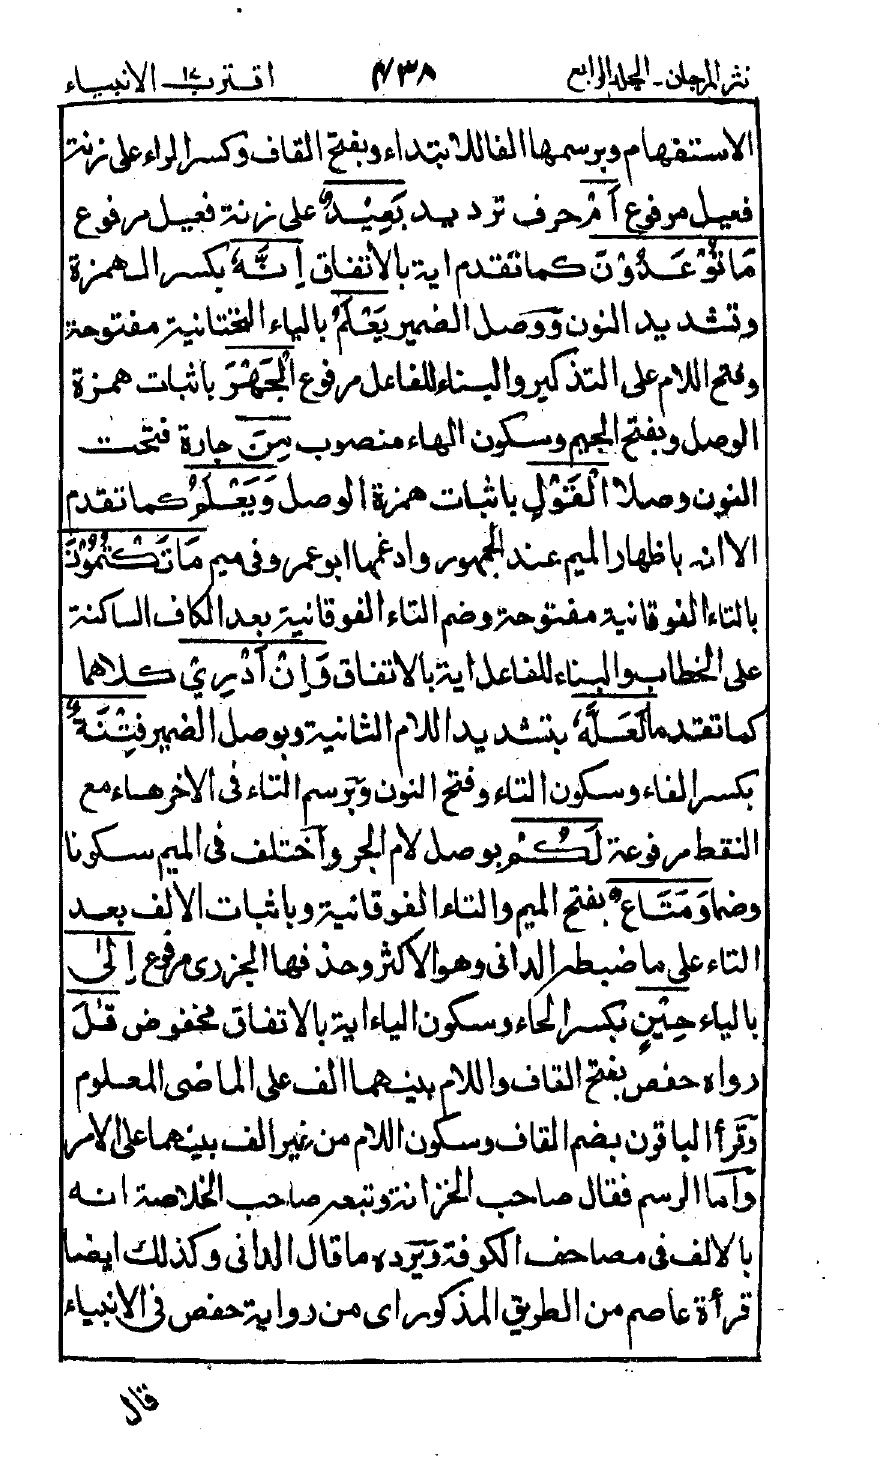 نثر المرجان - المجلد الرابع ٤٣٨ اقترب ١٧ - الانبياء
الاستفهام وبرسمها الفا للابتداء وبفتح القاف وكسر الراء على زنة
فعيل مرفوع أَمْ حرف ترديد بَعِيْدٌ على زنة فعيل مرفوع
مَا تُوْعَدُوْنَ كما تقدم اية بالاتفاق اِنَّهٗ بكسر الهمزة
وتشديد النون ووصل الضمير يَعْلَمُ بالياء التحتانية مفتوحة
وفتح اللام على التذكير والبناء للفاعل مرفوع الْجَهْرَ باثبات همزة
الوصل وبفتح الجيم وسكون الهاء منصوب مِنَ جارة فتحت
النون وصلا الْقَوْلِ باثبات همزة الوصل وَيَعْلَمُ كما تقدم
الا انه باظهار الميم عند الجمهور وادغمها ابو عمرو في ميم مَا تَكْتُمُوْنَ
بالتاء الفوقانية مفتوحة وضم التاء الفوقانية بعد الكاف الساكنة
على الخطاب والبناء للفاعل اية بالاتفاق وَاِنْ أَدْرِيْ كلاهما
كما تقدما لَعَلَّهٗ بتشديد اللام الثانية وبوصل الضمير فِتْنَةٌ
بكسر الفاء وسكون التاء وفتح النون وبرسم التاء في الاخر هاء مع
النقط مرفوعة لَكُمْ بوصل لام الجر واختلف في الميم سكونا
وضما وَمَتَاعٌ بفتح الميم والتاء الفوقانية وباثبات الالف بعد
التاء على ما ضبطه الداني وهو الاكثر وحذفها الجزري مرفوع اِلٰى
بالياء حِيْنٍ بكسر الحاء وسكون الياء اية بالاتفاق مخفوض قٰلَ
رواه حفص بفتح القاف واللام بينهما الف على الماضي المعلوم
وقرأ الباقون بضم القاف وسكون اللام من غير الف بينهما على الامر
واما الرسم فقال صاحب الخزانة وتبعه صاحب الخلاصة انه
بالالف في مصاحف الكوفة ويرده ما قال الداني وكذلك ايضا
قرأة عاصم من الطريق المذكور اي من رواية حفص في الانبياء
قال